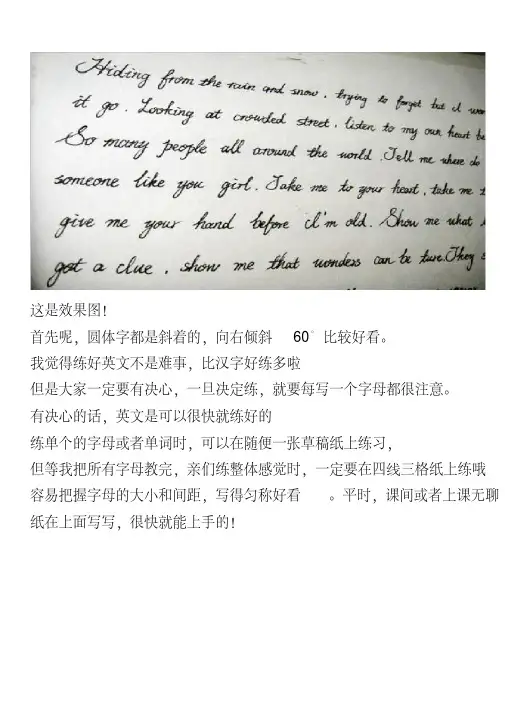 Hiding from the rain and snow. trying to forget but I won
it go. Looking at crowded street. listen to my own heart be
So many people all around the world. Tell me where do
someone like you girl. Take me to your heart, take me t
give me your hand before I'm old. Show me what
got a clue. show me that wonders can be true. They s
这是效果图！
首先呢，圆体字都是斜着的，向右倾斜 60°比较好看。
我觉得练好英文不是难事，比汉字好练多啦
但是大家一定要有决心，一旦决定练，就要每写一个字母都很注意。
有决心的话，英文是可以很快就练好的
练单个的字母或者单词时，可以在随便一张草稿纸上练习，
但等我把所有字母教完，亲们练整体感觉时，一定要在四线三格纸上练哦
容易把握字母的大小和间距，写得匀称好看 。平时，课间或者上课无聊
纸在上面写写，很快就能上手的！